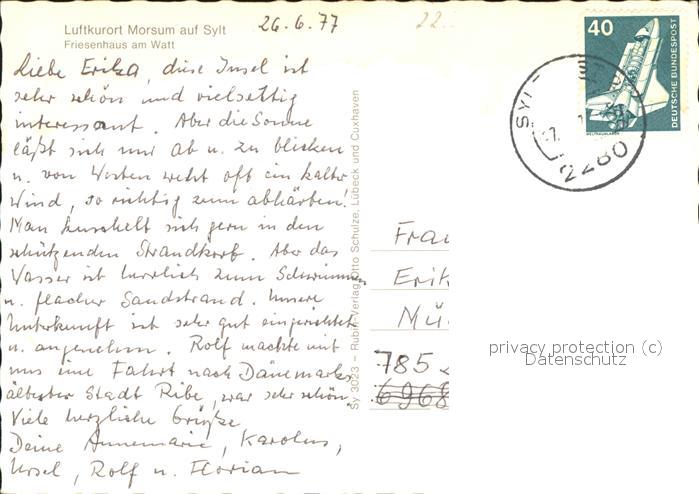 Luftkurort Morsum auf Sylt
Friesenhaus am Watt
26.6.77
22..
Liebe Erika, diese Insel ist
sehr schön und vielseitig
interessant. Aber die Sonne
läßt sich nur ab u. zu blicken
u. von Westen weht oft ein kalter
Wind, so richtig zum abhärten!
Man kuschelt sich gern in den
schützenden Strandkorb. Aber das
Wasser ist herrlich zum Schwimmen
u. flacher Sandstrand. Unsere
Unterkunft ist sehr gut eingerichtet
u. angenehm. Rolf machte mit
uns eine Fahrt nach Dänemarks
ältester Stadt Ribe, war sehr schön.
Viele herzliche Grüße
Deine Annemarie, Karolus,
Ursel, Rolf u. Florian
Sy 3023 – Rubin-Verlag Otto Schulze, Lübeck und Cuxhaven
40
DEUTSCHE BUNDESPOST
WELTRAUMLABOR
SYLT
2280
Frau
Erik
Mü
785
6968
privacy protection (c)
Datenschutz